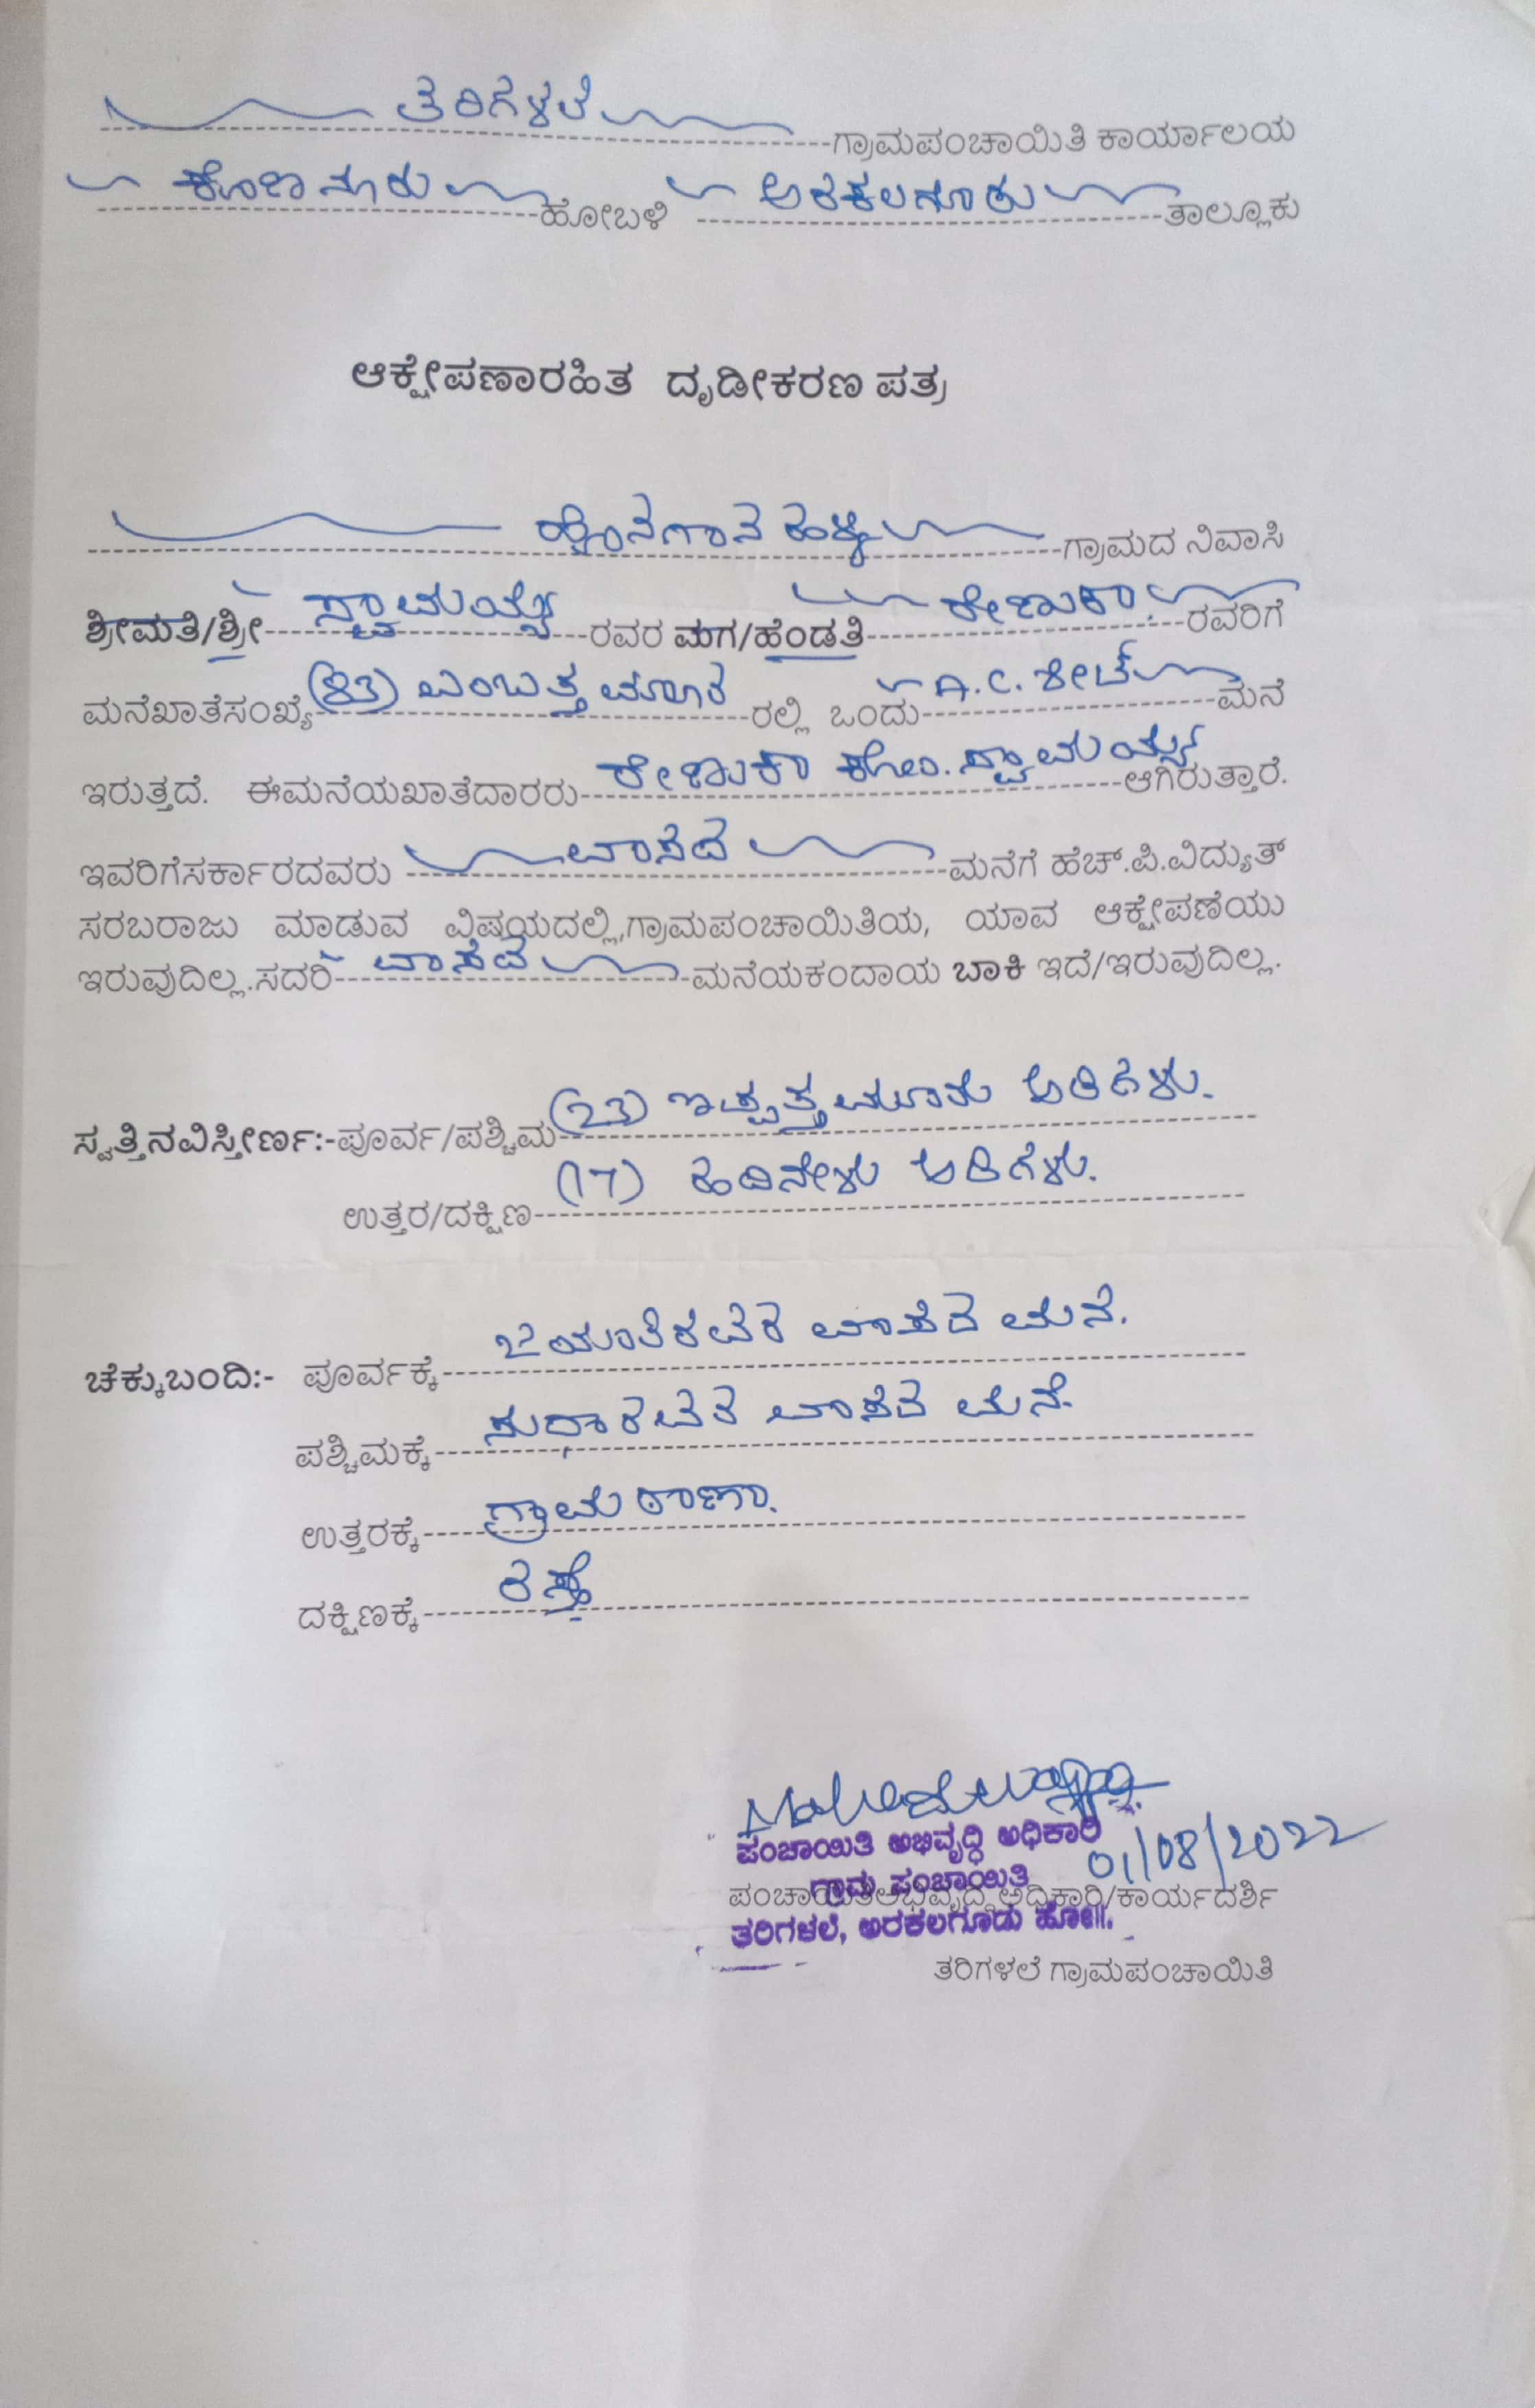 ತರಿಗಳಲೆ ಗ್ರಾಮಪಂಚಾಯಿತಿ ಕಾರ್ಯಾಲಯ
ಕೊಣನೂರು ಹೋಬಳಿ ಅರಕಲಗೂಡು ತಾಲ್ಲೂಕು
ಆಕ್ಷೇಪಣಾರಹಿತ ದೃಡೀಕರಣ ಪತ್ರ
ಹೊನಗಾನಹಳ್ಳಿ ಗ್ರಾಮದ ನಿವಾಸಿ
ಶ್ರೀಮತಿ/ಶ್ರೀ ಸ್ವಾಮಯ್ಯ ರವರ ಮಗ/ಹೆಂಡತಿ ರೇಣುಕಾ. ರವರಿಗೆ
ಮನೆಖಾತೆಸಂಖ್ಯೆ (83) ಎಂಬತ್ತ ಮೂರ ರಲ್ಲಿ ಒಂದು A.C. ಶೀಟ್ ಮನೆ
ಇರುತ್ತದೆ. ಈಮನೆಯಖಾತೆದಾರರು ರೇಣುಕಾ ಕೋಂ. ಸ್ವಾಮಯ್ಯ ಆಗಿರುತ್ತಾರೆ.
ಇವರಿಗೆಸರ್ಕಾರದವರು ವಾಸದ ಮನೆಗೆ ಹೆಚ್.ಪಿ.ವಿದ್ಯುತ್
ಸರಬರಾಜು ಮಾಡುವ ವಿಷಯದಲ್ಲಿ,ಗ್ರಾಮಪಂಚಾಯಿತಿಯ, ಯಾವ ಆಕ್ಷೇಪಣೆಯು
ಇರುವುದಿಲ್ಲ.ಸದರಿ ವಾಸದ ಮನೆಯಕಂದಾಯ ಬಾಕಿ ಇದೆ/ಇರುವುದಿಲ್ಲ.
ಸ್ವತ್ತಿನವಿಸ್ತೀರ್ಣ:-ಪೂರ್ವ/ಪಶ್ಚಿಮ (23) ಇಪ್ಪತ್ತಮೂರು ಅಡಿಗಳು.
ಉತ್ತರ/ದಕ್ಷಿಣ (17) ಹದಿನೇಳು ಅಡಿಗಳು.
ಚೆಕ್ಕುಬಂದಿ:- ಪೂರ್ವಕ್ಕೆ ವಾಸದ ಮನೆ.
ಪಶ್ಚಿಮಕ್ಕೆ ಸುಧಾರವರ ವಾಸದ ಮನೆ.
ಉತ್ತರಕ್ಕೆ ಗ್ರಾಮ ಠಾಣಾ.
ದಕ್ಷಿಣಕ್ಕೆ ರಸ್ತೆ
ಪಂಚಾಯಿತಿ ಅಭಿವೃದ್ಧಿ ಅಧಿಕಾರಿ 01/08/2022
ಗ್ರಾಮ ಪಂಚಾಯಿತಿ
ಪಂಚಾಯಿತಿಅಭಿವೃದ್ಧಿ ಅಧಿಕಾರಿ/ಕಾರ್ಯದರ್ಶಿ
ತರಿಗಳಲೆ, ಅರಕಲಗೂಡು ಹೋ||.
ತರಿಗಳಲೆ ಗ್ರಾಮಪಂಚಾಯಿತಿ